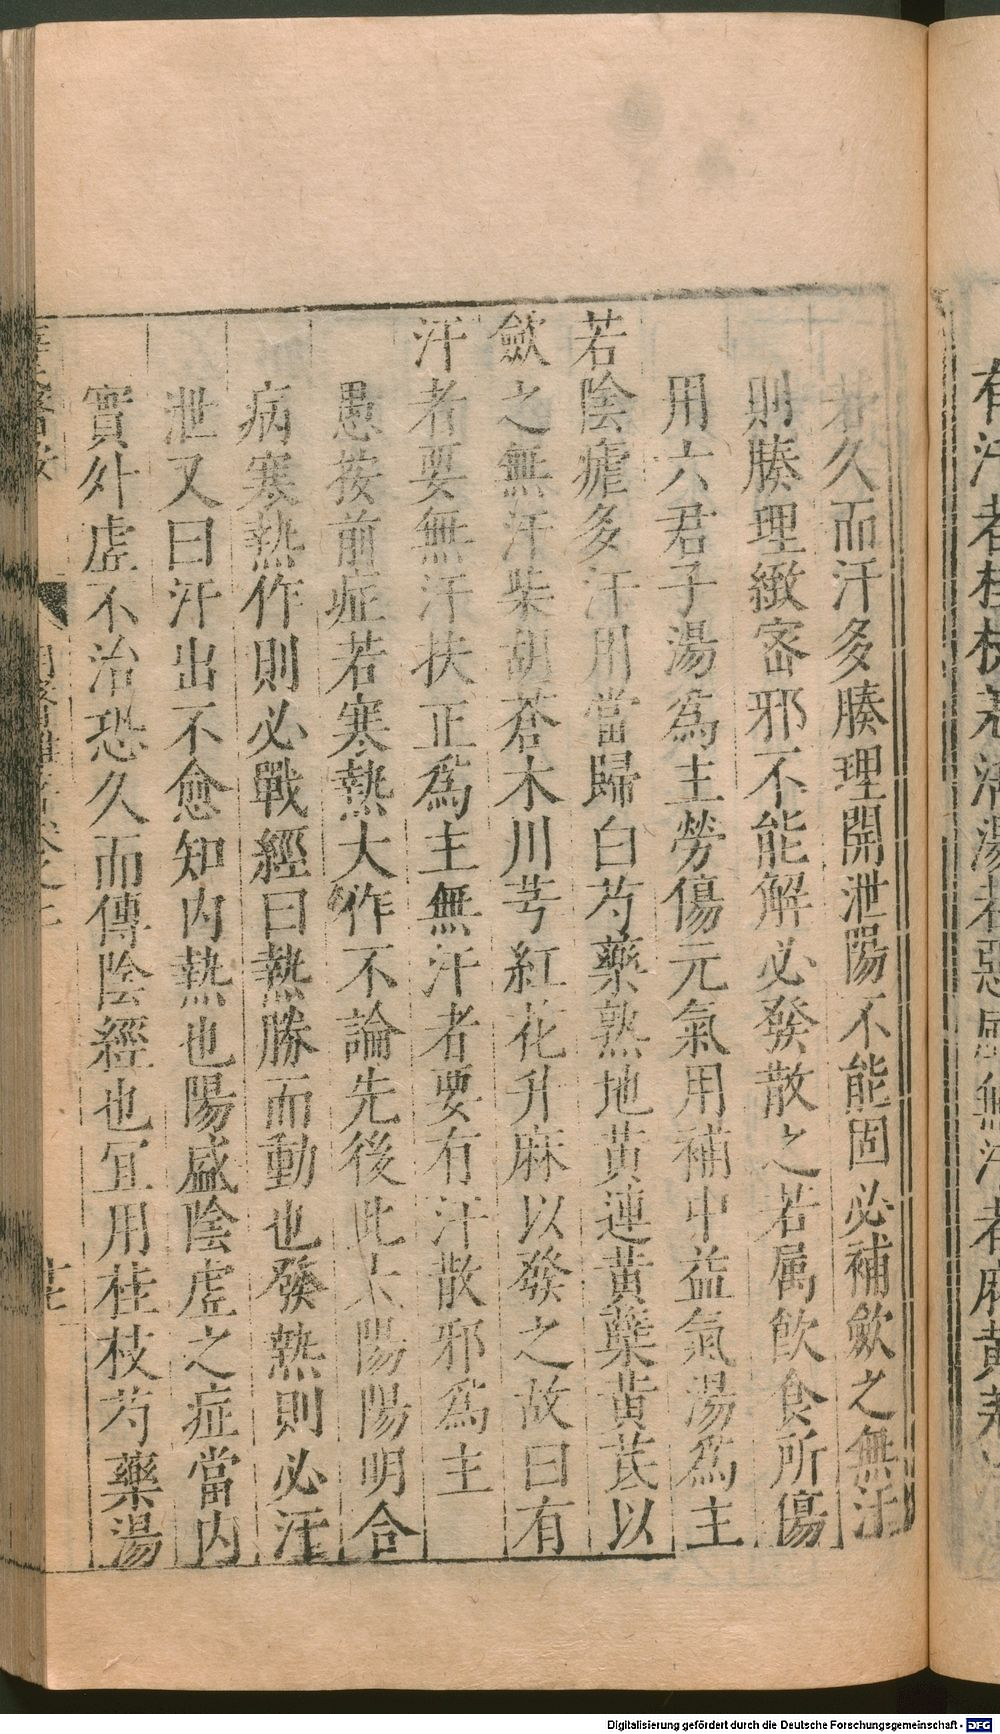 若久而汗多腠理開泄陽不能固必補斂之無汗
則腠理緻密邪不能解必發散之若属飲食所傷
用六君子湯爲主勞傷元氣用補中益氣湯爲主
若陰瘧多汗用當歸白芍藥熟地黃連黃蘗黃芪以
斂之無汗柴胡蒼木川芎紅花升麻以發之故曰有
汗者要無汗扶正爲主無汗者要有汗散邪爲主
愚按前症若寒熱大作不論先後此太陽陽明合
病寒熱作則必戰經曰熱勝而動也發熱則必汗
泄又曰汗出不愈知内熱也陽盛陰虛之症當内
實外虛不治恐久而傳陰經也宜用桂枝芍藥湯
Digitalisierung gefördert durch die Deutsche Forschungsgemeinschaft - DFG